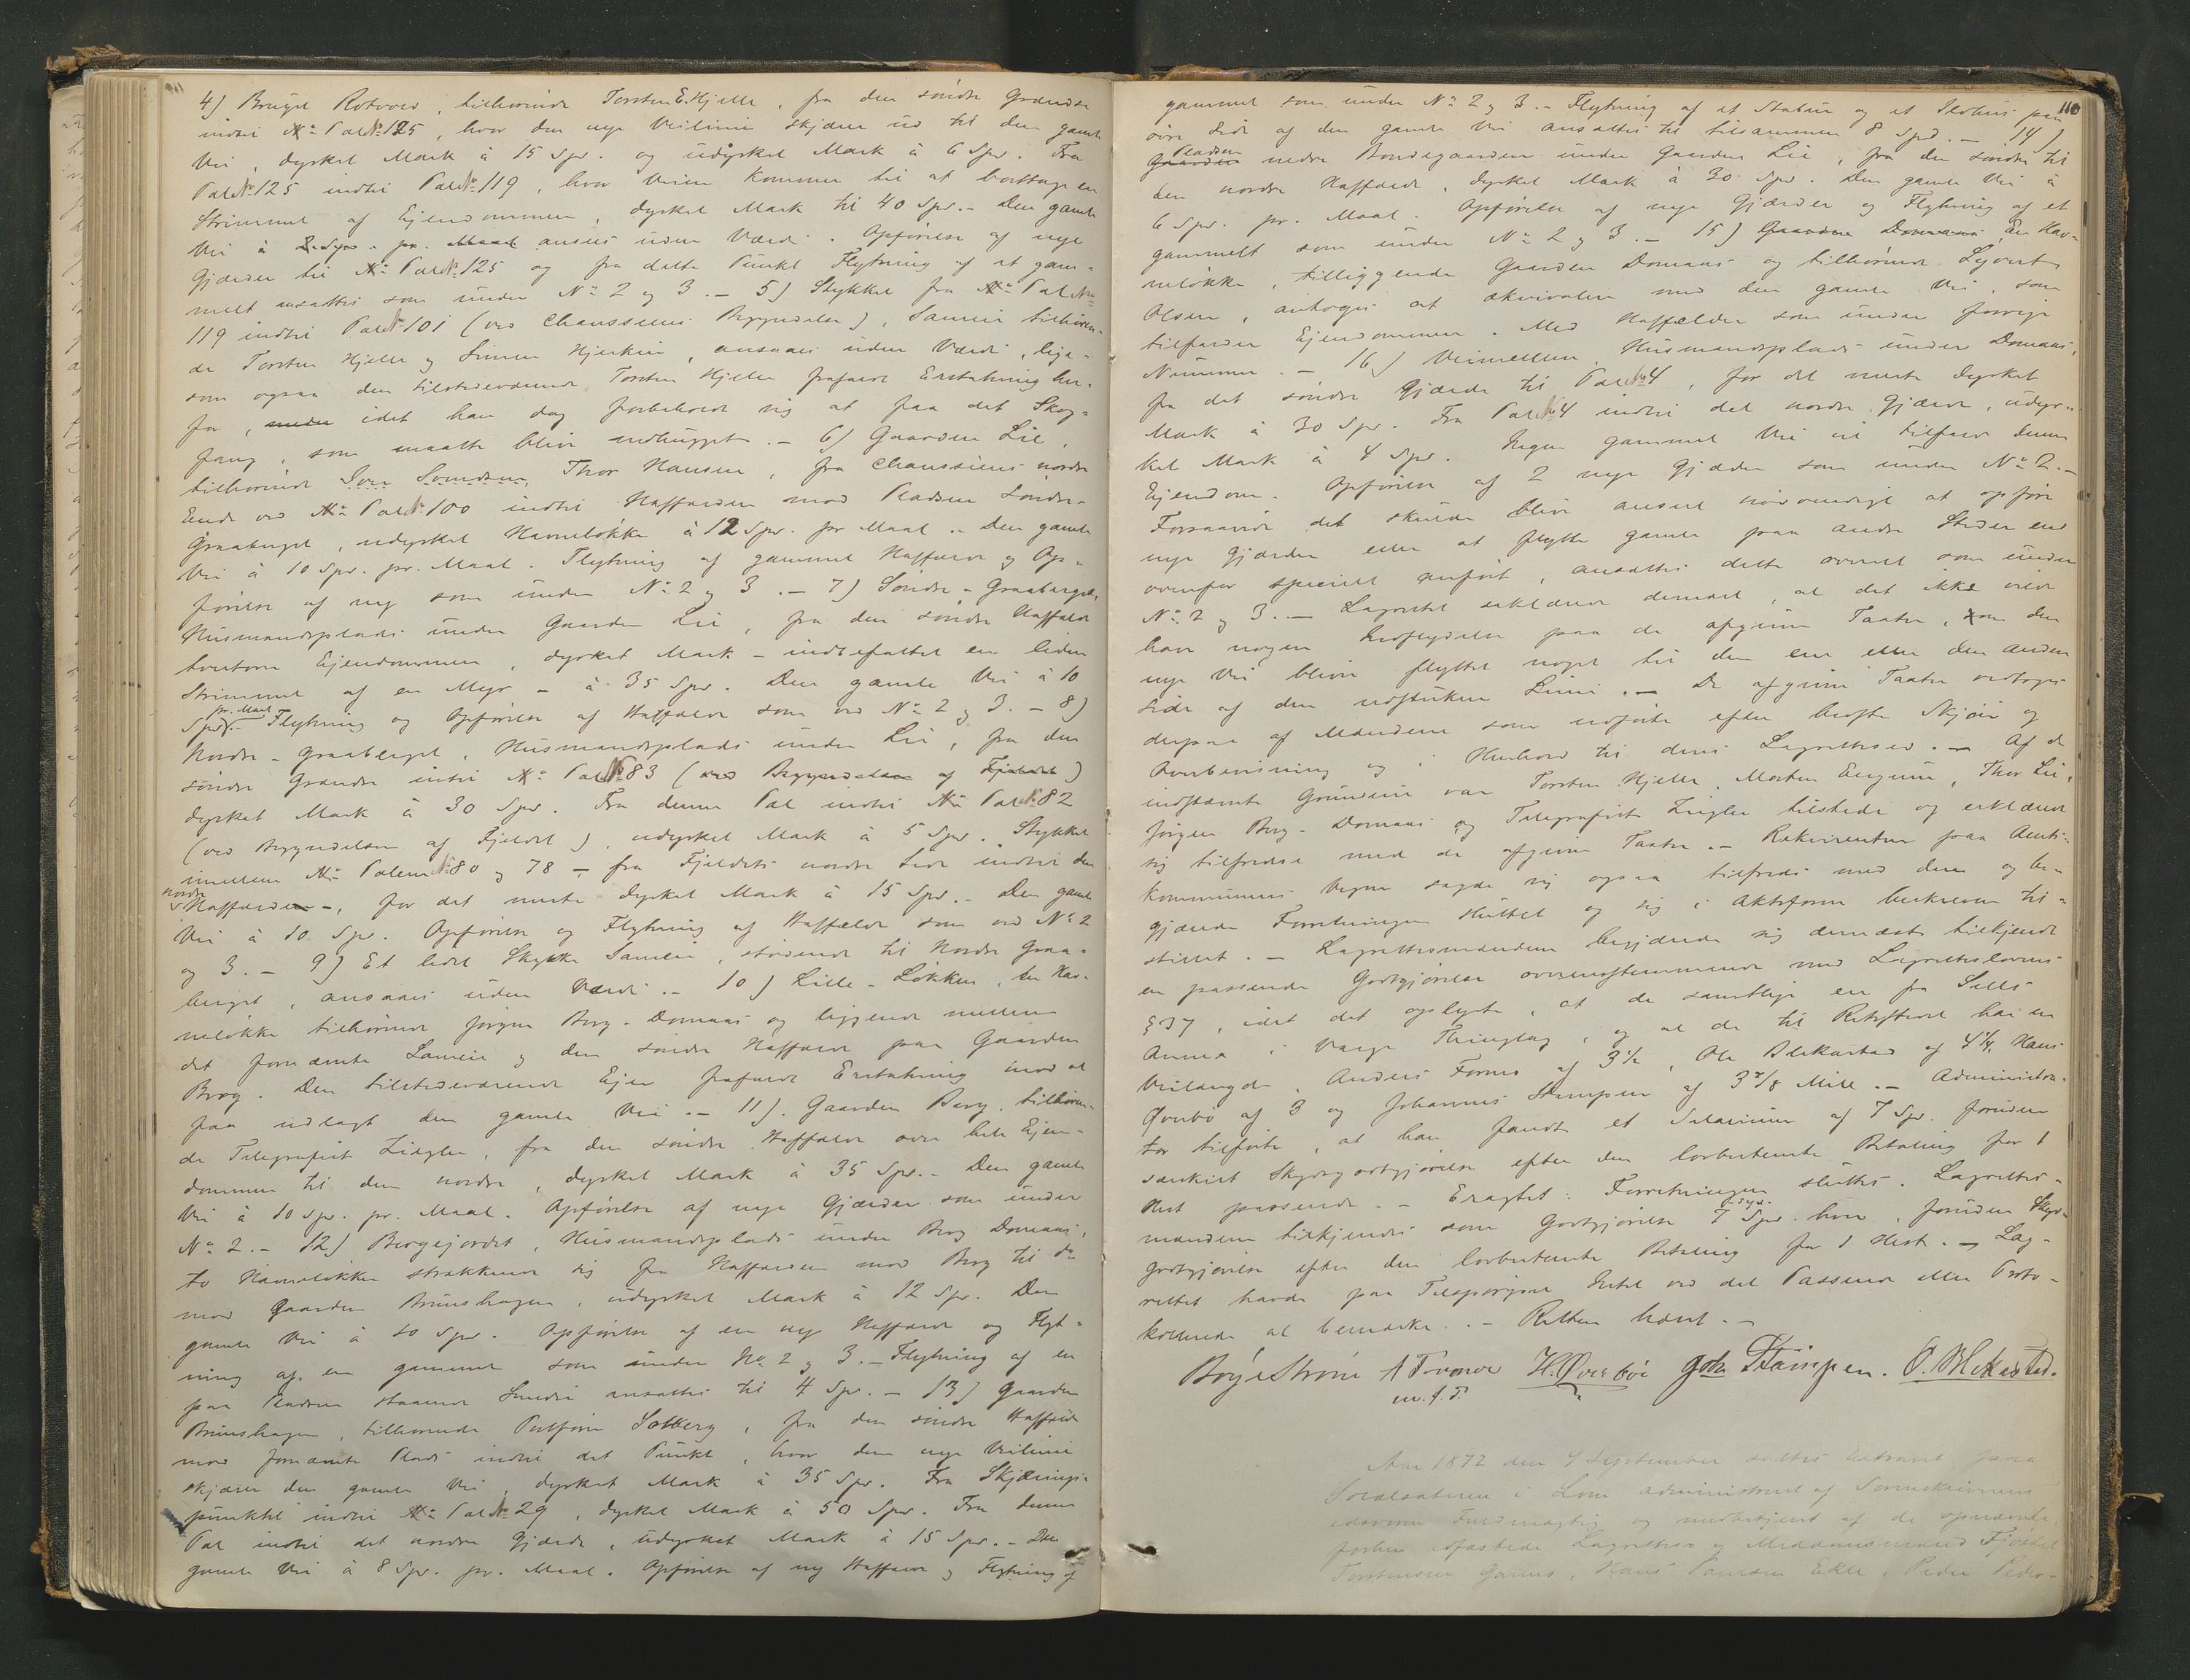 4) Bruget Rotvold, tilhørende Torsten E. Hjelle, fra den søndre Grændse
indtil Pal No 125, hvor den nye Veilinie skjærer ud til den gamle
Vei, dyrket Mark à 15 Spd. og udyrket Mark à 6 Spd. Fra
Pal No 125 indtil Pal No 119, hvor Veien kommer til at borttage en
Strimmel af Ejendommen, dyrket Mark til 40 Spd. - Den gamle
Vei à 2 Spd. pr. Maal ansees uden Værdi. Opførelse af nye
Gjærder til Pal No 125 og fra dette Punkt Flytning af et gam-
melt ansættes som under No 2 og 3. - 5) Stykket fra Pal No
119 indtil Pal No 101 (ved Chausseens Begyndelse), Sameie tilhøren-
de Torsten Hjelle og Simen Hjerkin, ansaaes uden Værdi, lige-
som ogsaa den tilstedeværende Torsten Hjelle frafaldt Erstatning her-
for, idet han dog forbeholdt sig at faa det Skog-
fang, som maatte blive nedhugget. - 6) Gaarden Lie,
tilhørende Thor Hansen, fra Chausseens nordre
Ende ved Pal No 100 indtil Havfælden mod Pladsen Søndre-
Graaberget, udyrket Havneløkke à 12 Spd. pr Maal. - Den gamle
Vei à 10 Spd. pr. Maal. Flytning af gammel Havfælde og Op-
førelse af ny som under No 2 og 3. - 7) Søndre-Graaberget,
Husmandsplads under Gaarden Lie, fra den søndre Havfælde
tvertover Ejendommen, dyrket Mark - indbefattet en liden
Strimmel af en Myr - à 35 Spd. Den gamle Vei à 10
Spd. pr. Maal - Flytning og Opførelse af Havfælde som ved No 2 og 3. - 8)
Nordre-Graaberget, Husmandsplads under Lie, fra den
søndre Grændse indtil Pal No 83 (ved Begyndelsen af Fjeldet)
dyrket Mark à 30 Spd. Fra denne Pal indtil Pal No 82
(ved Begyndelsen af Fjeldet), udyrket Mark à 5 Spd. Stykket
imellem Palerne No 80 og 78 - fra Fjeldets nordre Side indtil den
nordre Havfælde -, for det meste dyrket Mark à 15 Spd. - Den gamle
Vei à 10 Spd. Opførelse og Flytning af Havfælde som ved No 2
og 3. - 9) Et lidet Stykke Sameie, stødende til Nordre Graa-
berget, ansaaes uden Værdi. - 10) Lille-Løkken, en Hav-
neløkke tilhørende Jørgen Berg-Domaas og liggende mellem
det fornævnte Sameie og den søndre Havfælde paa Gaarden
Berg. Den tilstedeværende Ejer frafaldt Erstatning mod at
faa udlagt den gamle Vei. - 11). Gaarden Berg, tilhøren-
de Telegrafist Ziegler, fra den søndre Havfælde over hele Ejen-
dommen til den nordre, dyrket Mark à 35 Spd. - Den gamle
Vei à 10 Spd. pr. Maal. Opførelse af nye Gjærder som under
No 2. - 12) Bergejordet, Husmandsplads under Berg Domaas,
to Havneløkker strækkende sig fra Havfælden mod Berg til do
mod Gaarden Brunshagen, udyrket Mark à 12 Spd. Den
gamle Vei à 10 Spd. Opførelse af en ny Havfælde og Flyt-
ning af en gammel som under No 2 og 3. - Flytning af en
paa Pladsen staaende Smedie ansættes til 4 Spd. - 13) Gaarden
Brunshagen, tilhørende Solberg, fra den søndre Havfælde
mod fornævnte Plads indtil det Punkt, hvor den nye Veilinie
skjærer den gamle Vei, dyrket Mark à 35 Spd. Fra Skjærings-
punktet indtil Pal No 29, dyrket Mark à 50 Spd. Fra denne
Pal indtil det nordre Gjærde, udyrket Mark à 15 Spd. - Den
gamle Vei à 8 Spd. pr. Maal. Opførelse af ny Havfælde og Flytning af
110
gammel som under No 2 og 3. - Flytning af et Stabur og et Ildhus paa
øvre Side af den gamle Vei ansættes til tilsammen 8 Spd. - 14)
Pladsen nedre Bondegaarden under Gaarden Lie, fra den søndre til
den nordre Havfælde, dyrket Mark à 30 Spd. Den gamle Vei à
6 Spd. pr. Maal. Opførelse af nye Gjærder og Flytning af et
gammelt som under No 2 og 3. - 15) Gaarden Domaas, En Hav-
neløkke, tilliggende Gaarden Domaas og tilhørende Syvert
Olsen, antoges at ækvivalere med den gamle Vei, som
tilfalder Ejendommen. Med Havfælder som under forrige
Nummer. - 16) Veimellem, Husmandsplads under Domaas,
fra det søndre Gjærde til Pal No 4, for det meste dyrket
Mark à 30 Spd. Fra Pal No 4 indtil det nordre Gjærde, udyr-
ket Mark à 4 Spd. Ingen gammel Vei vil tilfalde denne
Ejendom. Opførelse af 2 nye Gjærder som under No 2. -
Forsaavidt det skulde blive anseet nødvendigt at opføre
nye Gjærder eller at flytte gamle paa andre Steder end
ovenfor specielt anført, ansættes dette overalt som under
No 2 og 3. - Lagrettet erklærede dernæst, at det ikke vilde
have nogen Indflydelse paa de afgivne Taxter, om den
nye Vei bliver flyttet noget til den ene eller den anden
Side af den udstukne Linie. - De afgivne Taxter vedtoges
derpaa af Mændene som udførte efter bedste Skjøn og
Overbevisning og i Henhold til deres Lagrettesed. - Af de
indstævnte Grundeiere var Torsten Hjelle, Morten Engum, Thor Lie,
Jørgen Berg-Domaas og Telegrafist Ziegler tilstede og erklærede
sig tilfredse med de afgivne Taxter. - Rekvirenten paa Amts-
kommunens Vegne sagde sig ogsaa tilfreds med dem og be-
gjærede Forretningen sluttet og sig i Aktsform beskreven til-
stillet. - Lagrettesmændene begjærede sig dernæst tilkjendt
en passende Godtgjørelse overensstemmende med Lagrettelovens
§ 37, idet det oplystes, at de samtlige ere fra Sells
Annex i Vaage Thinglag, og at de til Retsstedet have en
Veilængde, Anders Formo af 3½, Ole Blekastad af 4¼, Hans
Øvrebø af 3 og Johannes Stampen af 3⅜ Mile. - Administra-
tor tilførte, at han fandt et Salarium af 7 Spd. foruden
særskilt Skydsgodtgjørelse efter den lovbestemte Betaling for 1
Hest passende. - Eragtet: Forretningen sluttes. Lagrettes-
mændene tilkjendes som Godtgjørelse 7 syv Spd. hver, foruden Skyds-
godtgjørelse efter den lovbestemte Betaling for 1 Hest. - Lag-
rettet havde paa Tilspørgsel Intet ved det Passerede eller Proto-
kollerede at bemærke. - Retten hævet. -
Børje Strøm A Formo H. Øvrebøe Joh Stampen. O. Blekastad.
m. f. P.
Aar 1872 den 4 September sattes Extraret paa
i Lom administreret af Sorenskriverens
edsvorne Fuldmægtig og medbetjent af de opnævnte,
forhen edfæstede Lagrettes og Meddomsmænd
Torstensen Garmo, Hans Ekle, Peder Peder-